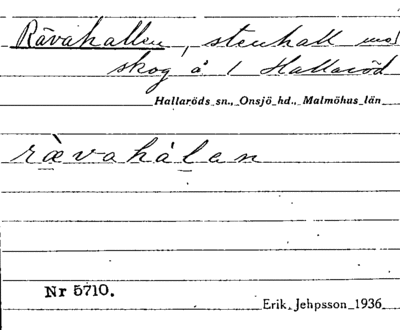 Rävahallen, stenhall med
skog å 1 Hallaröd
Hallaröds sn., Onsjö hd., Malmöhus län
ràvahàlen
Nr 5710.
Erik Jehpsson 1936